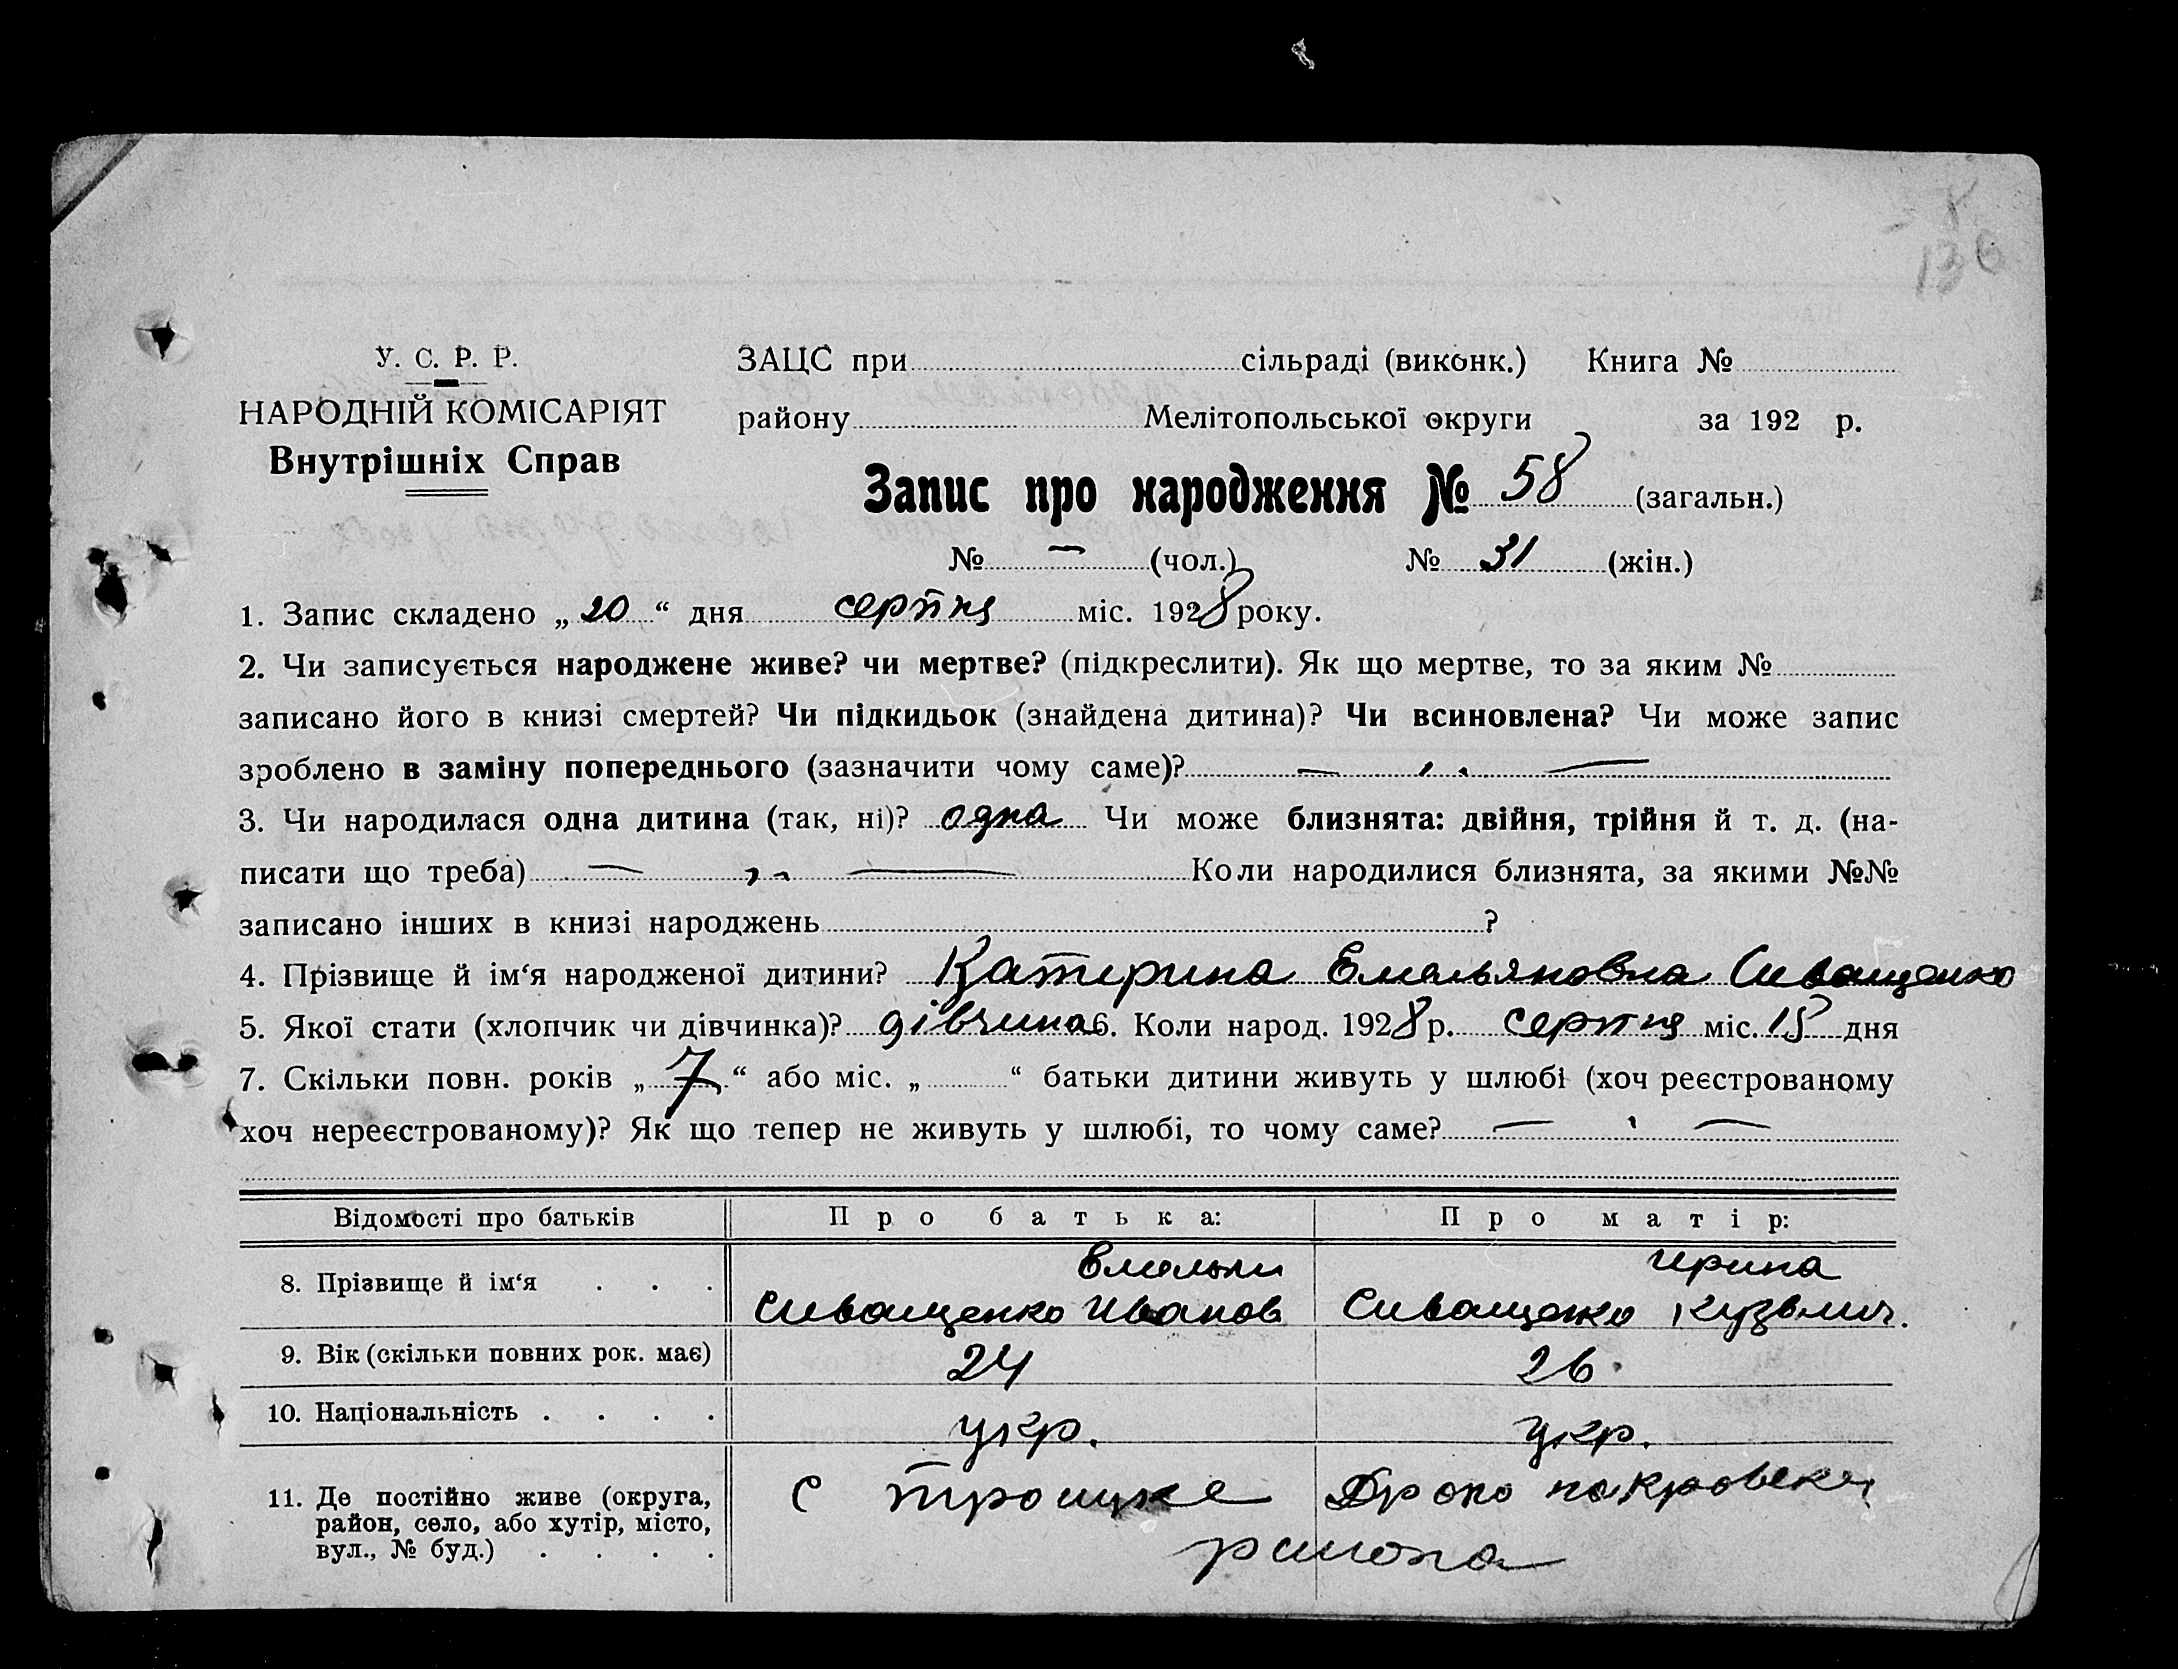 136
У. С. Р. Р.
НАРОДНІЙ КОМІСАРІЯТ
Внутрішніх Справ
ЗАЦС при сільраді (виконк.) Книга №
району Мелітопольської округи за 192 р.
Запис про народження № 58 (загальн.)
№ — (чол.) № 31 (жін.)
1. Запис складено „20“ дня серпня міс. 1928 року.
2. Чи записується народжене живе? чи мертве? (підкреслити). Як що мертве, то за яким №
записано його в книзі смертей? Чи підкидьок (знайдена дитина)? Чи всиновлена? Чи може запис
зроблено в заміну попереднього (зазначити чому саме)? — „ —
3. Чи народилася одна дитина (так, ні)? одна Чи може близнята: двійня, трійня й т. д. (на-
писати що треба) — „ — Коли народилися близнята, за якими №№
записано інших в книзі народжень ?
4. Прізвище й ім‘я народженої дитини? Катерина Емельяновна Сиващенко
5. Якої стати (хлопчик чи дівчинка)? дівчина 6. Коли народ. 1928 р. серпня міс. 15 дня
7. Скільки повн. років „7“ або міс. „ “ батьки дитини живуть у шлюбі (хоч реєстрованому
хоч нереєстрованому)? Як що тепер не живуть у шлюбі, то чому саме? — „ —
Відомості про батьків Про батька: Про матір:
8. Прізвище й ім‘я . . . Емельян Ирина
Сиващенко Иванов Сиващенко Кузьмич.
9. Вік (скільки повних рок. має) 24 26.
10. Національність . . . . укр. укр.
11. Де постійно живе (округа,
район, село, або хутір, місто,
вул., № буд.) . . . .
с троицке
района